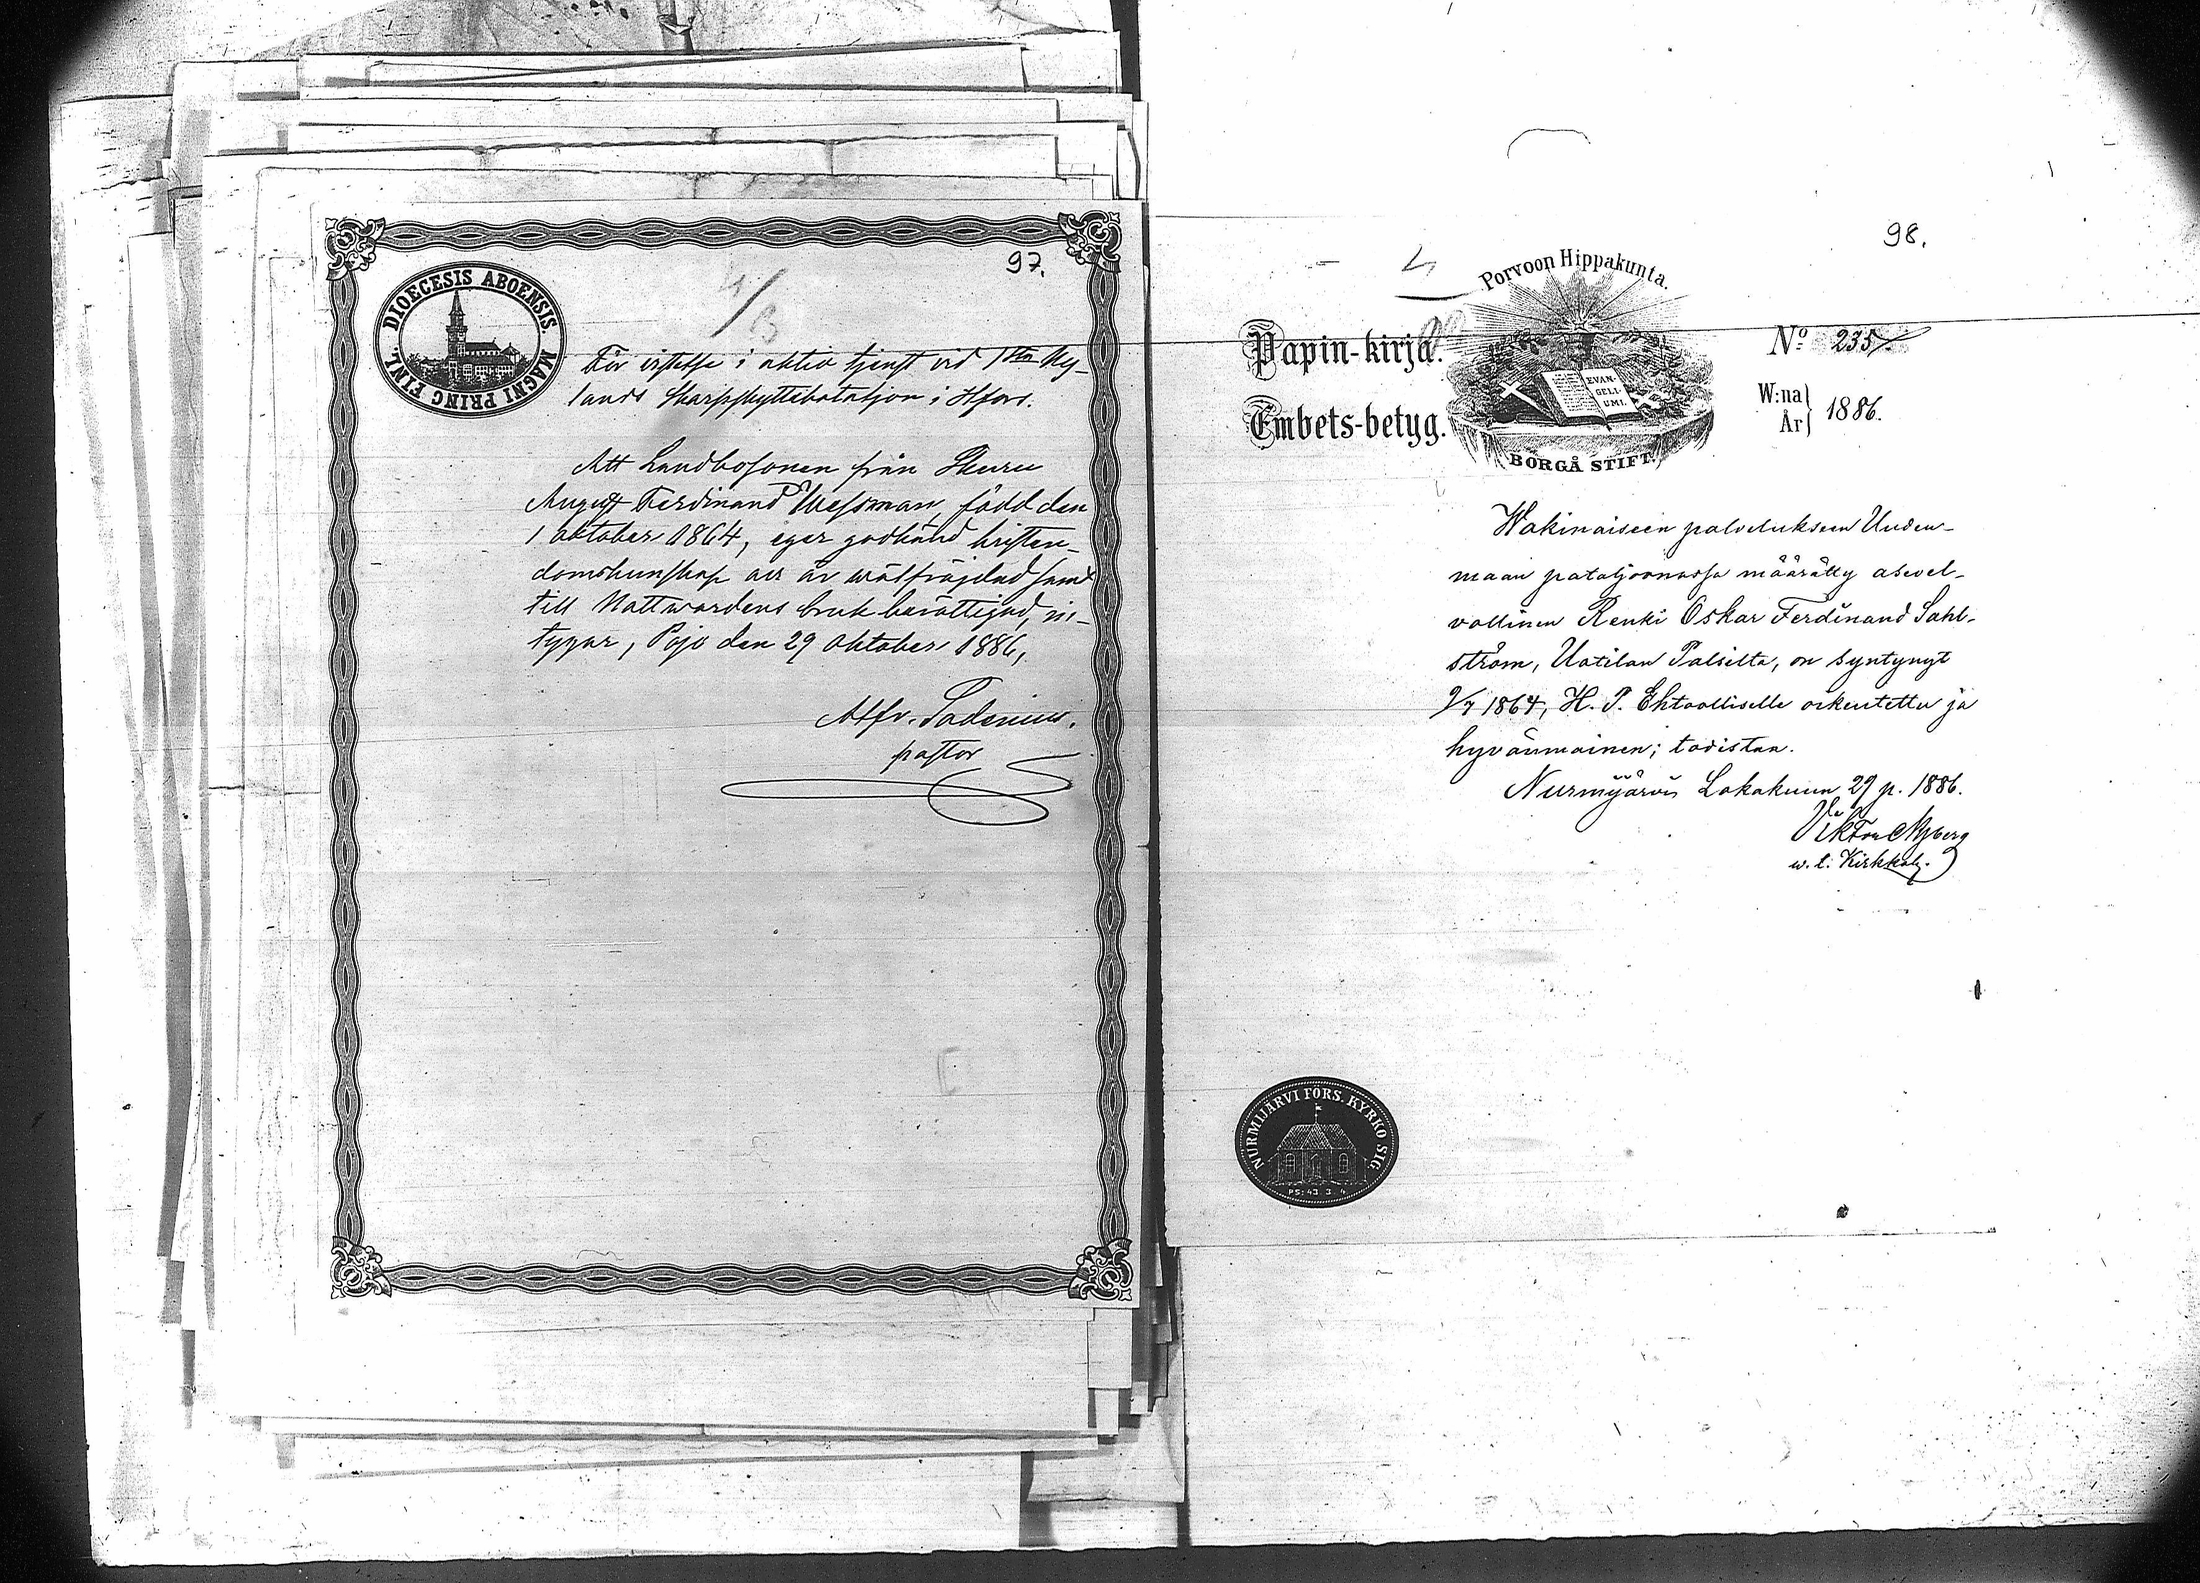 97.
DIOECESIS ABOENSIS. MAGNI PRINC FINL.
4/B
För vistelse i aktiv tjenst vid 1sta Ny-
lands Skarpskyttebataljon i Hfors.
Att Landbosonen från Skuru
August Ferdinand Wessman, född den
1 oktober 1864, eger godkänd kristen-
domskunskap och är wälfrägdad samt
till Nattwardens bruk berättigad, in-
tygar, Pojo den 29 oktober 1886,
Alfr. Sadenius.
pastor
98.
Porvoon Hippakunta.
Papin-kirja.
Embets-betyg.
EVAN-
GELI-
UMI.
BORGÅ STIFT.
No 235
W:na
År
1886.
Wakinaiseen palvelukseen Uuden-
maan pataljoonassa määrätty asevel-
vollinen Renki Oskar Ferdinand Sahl-
ström, Uotilan Palsilta, on syntynyt
9/7 1864, H. P. Ehtoolliselle oikeutettu ja
hyvänmainen; todistaa.
Nurmijärvi Lokakuun 29 p. 1886.
Viktor Nyberg
w. t. Kirkkoh.
NURMIJÄRVI FÖRS. KYRKO SIG.
PS: 43. 3. 4